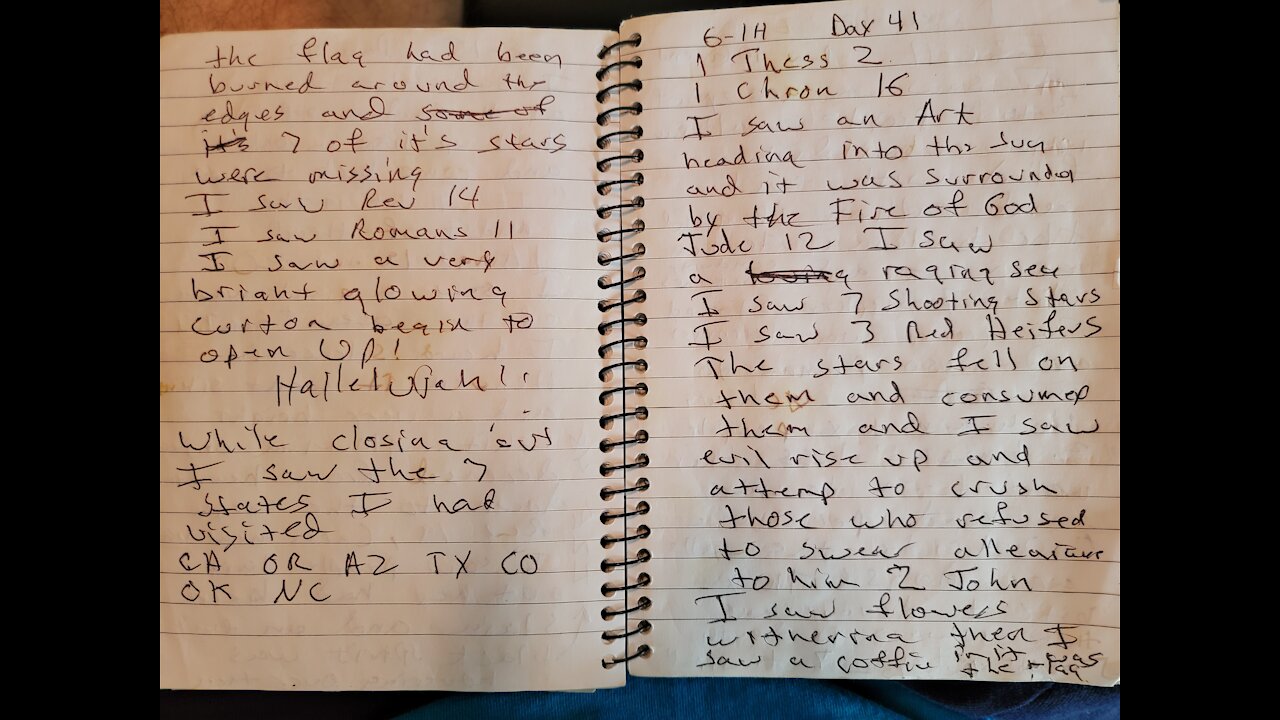 the flag had been
burned around the
edges and some of
it's 7 of it's stars
were missing
I saw Rev 14
I saw Romans 11
I saw a very
briant glowing
curton begin to
open Up!
Hallelujah!!
while closing out
I saw the 7
states I had
visited
CA OR AZ TX CO
OK NC
6-1H Day 41
1 Thess 2
1 Chron 16
I saw an Art
heading into the sun
and it was surrounded
by the Fire of God
Jude 12 I saw
a raging sea
I saw 7 Shooting Stars
I saw 3 Red Heifers
The stars fell on
them and consumed
them and I saw
evil rise up and
attemp to crush
those who refused
to swear allegiance
to him 2 John
I saw flowers
withering then I
saw a coffin in it was
the flag